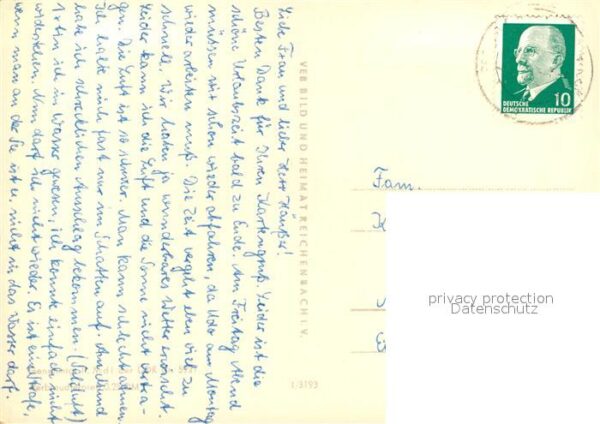 Liebe Frau und lieber Herr Häußer!
Besten Dank für Ihren Kartengruß. Leider ist die
schöne Urlaubszeit bald zu Ende. Am Freitag Abend
müssen wir schon wieder abfahren, da Udo am Montag
wieder arbeiten muß. Die Zeit vergeht eben viel zu
schnell. Wir haben ja wunderbares Wetter erwischt.
Leider kann ich die Luft und die Sonne nicht vertra-
gen. Die Luft ist so schwer. Man kann schlecht atmen.
Ich halte mich fast nur im Schatten auf. Am und
habe ich schrecklichen Ausschlag bekommen. (Salzluft)
1x bin ich im Wasser gewesen, ich konnte einfach nicht
widerstehen. Nun darf ich nicht wieder. Es ist eine Strafe,
wenn man an der See ist u. nicht in das Wasser darf.
VEB BILD UND HEIMAT REICHENBACH I. V.
I/3193
DEUTSCHE
DEMOKRATISCHE REPUBLIK
10
Fam.
privacy protection
Datenschutz